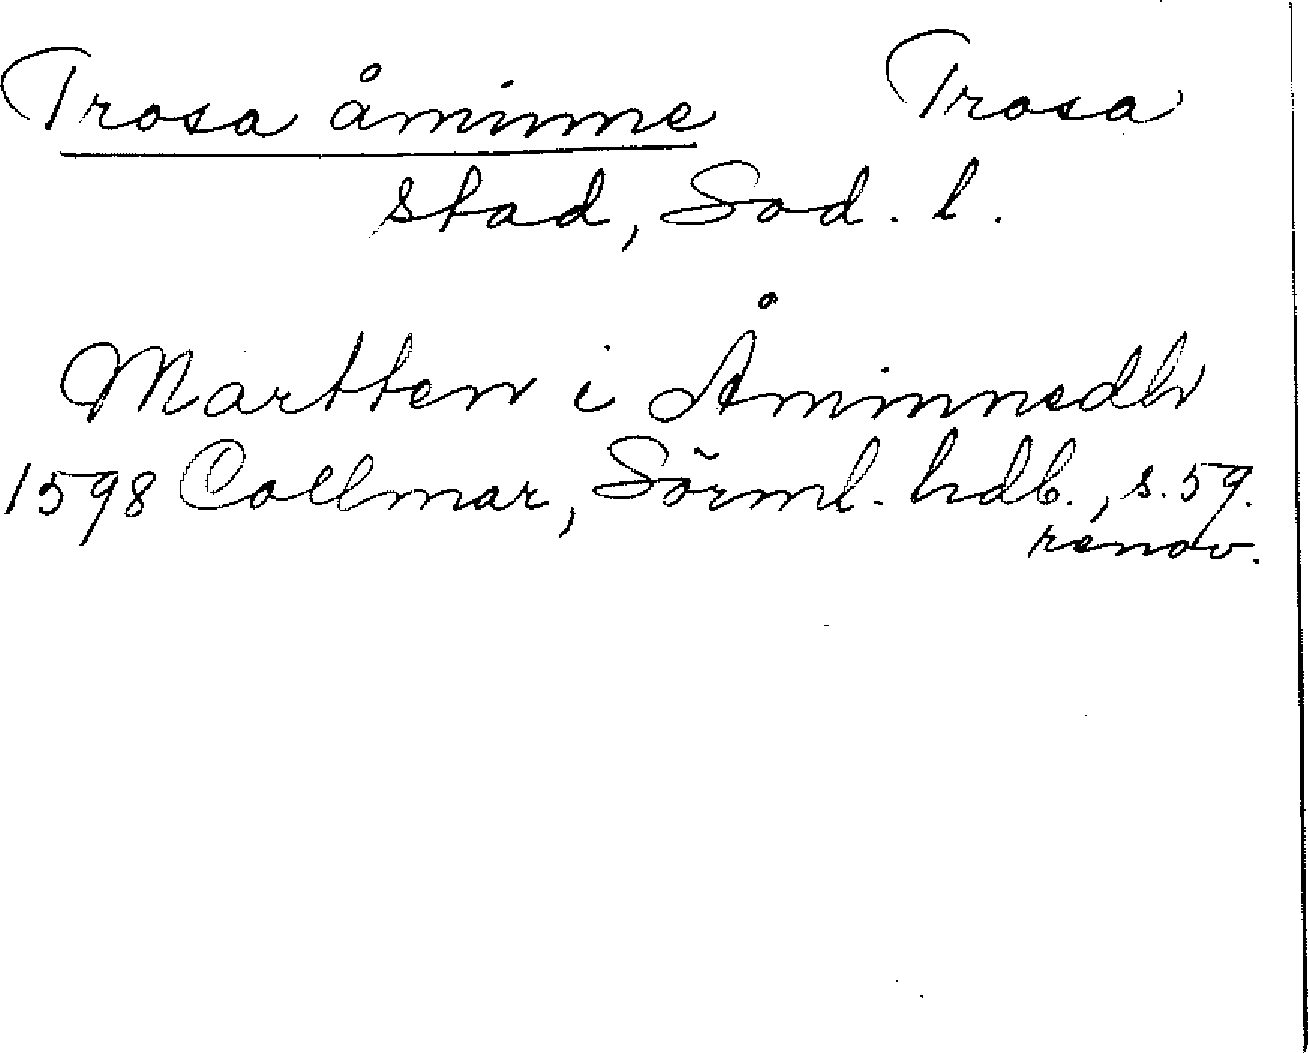 Trosa åminne Trosa
stad, Sod. l.
Martten i Åminnedh
1598 Collmar, Sörml. hdb., s. 59.
renov.